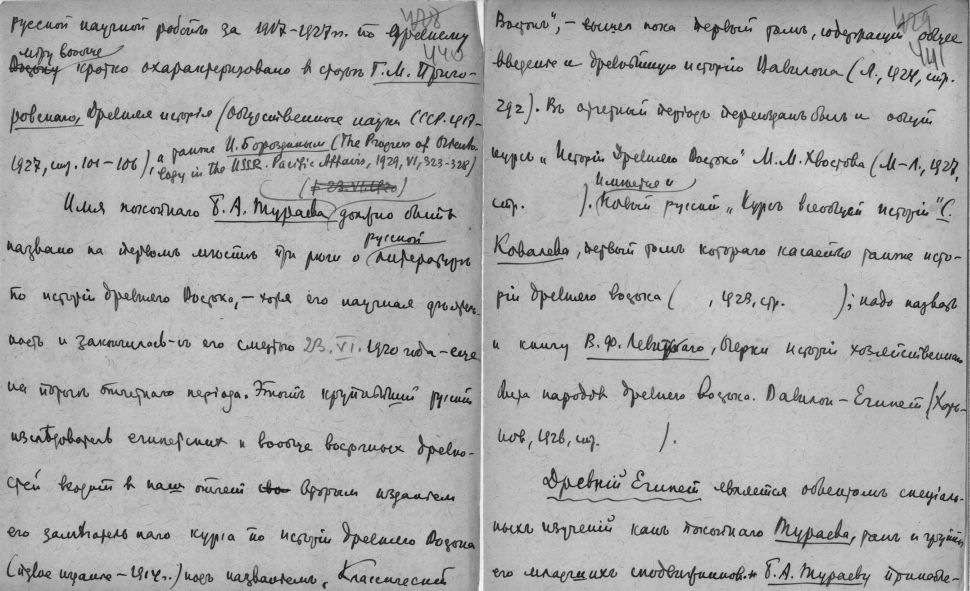 438
русской научной работы за 1917-1927 гг. по древнему
440
Востоку вообще
кратко охарактеризовано в статье Г. М. Приго-
ровскаго, Древняя исторія (Общественные науки СССР. 1917-
1927, стр. 101-106), а также И. Бороздинымъ (The Progress of Orienta-
logy in the USSR. Pacific Affairs, 1929, VI, 323-328)
(† 23.VI.1920)
Имя покойнаго Б. А. Тураева должно быть
русской
названо на первомъ мѣстѣ при рѣчи о литературѣ
по исторіи древняго Востока, – хотя его научная дѣятель-
ность и закончилась съ его смертью 23.VI.1920 года – еще
на порогѣ отчетнаго періода. Этотъ крупнѣйшій русскій
изслѣдователь египетскихъ и вообще восточныхъ древно-
стей входитъ в наш отчет вторым изданіем
его замѣчательнаго курса по исторіи древняго Востока
(первое изданіе – 1914 г.) подъ названіемъ „Классическій
439
Востокъ", – вышел пока первый томъ, содержащій общее
441
введеніе и древнѣйшую исторію Вавилона (Л., 1924, стр.
292). Въ отчетный періодъ переизданъ былъ и общій
курсъ „Исторія Древняго Востока" М. М. Хвостова (М-Л., 1927,
Имѣется и
стр. ). новый русскій „Курсъ всеобщей исторіи" С.
Ковалева, первый томъ котораго касается также исто-
ріи древняго востока ( , 1923, стр. ); надо назвать
и книгу В. Ф. Левитскаго, Очерки исторіи хозяйственнаго
быта народов древняго востока. Вавилон – Египет (Харь-
ков, 1926, стр. ).
Древній Египет является объектомъ спеціаль-
ныхъ изученій какъ покойнаго Тураева, такъ и группы
его младшихъ сподвижников. Б. А. Тураеву принадле-